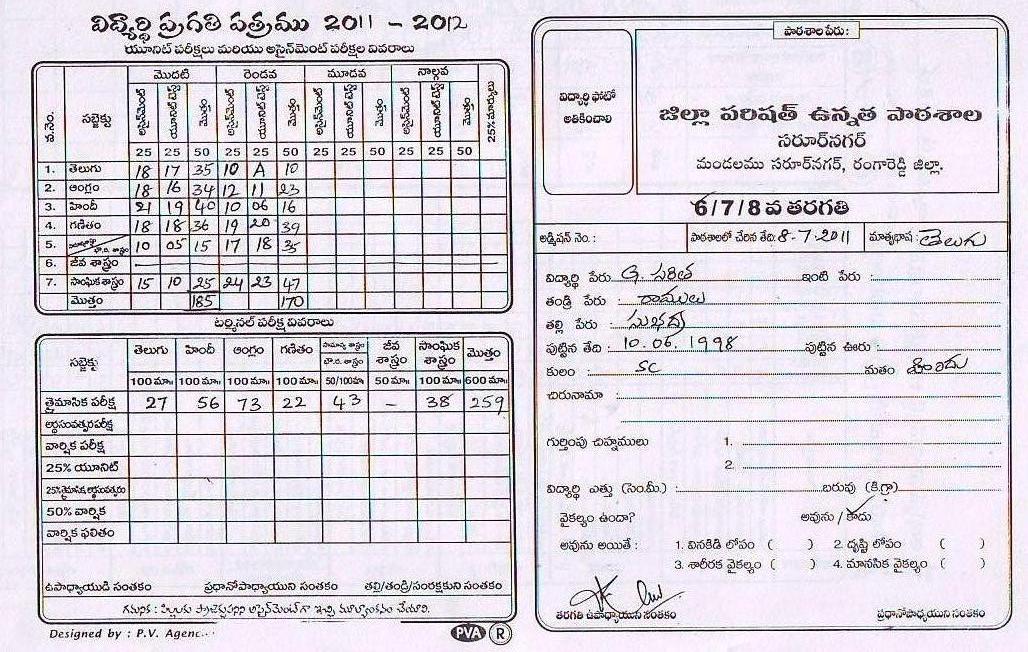 విద్యార్థి ప్రగతి పత్రము 2011 - 2012
యూనిట్ పరీక్షలు మరియు అసైన్‌మెంట్ పరీక్షల వివరాలు
వ.నెం. సబ్జెక్టు మొదటి రెండవ మూడవ నాల్గవ 25% మార్కులు
అసైన్‌మెంట్ యూనిట్ టెస్ట్ మొత్తం అసైన్‌మెంట్ యూనిట్ టెస్ట్ మొత్తం అసైన్‌మెంట్ యూనిట్ టెస్ట్ మొత్తం అసైన్‌మెంట్ యూనిట్ టెస్ట్ మొత్తం
25 25 50 25 25 50 25 25 50 25 25 50
1. తెలుగు 18 17 35 10 A 10
2. ఆంగ్లం 18 16 34 12 11 23
3. హిందీ 21 19 40 10 06 16
4. గణితం 18 18 36 19 20 39
5. 10 05 15 17 18 35
6. జీవ శాస్త్రం
7. సాంఘిక శాస్త్రం 15 10 25 24 23 47
మొత్తం 185 170
టర్మినల్ పరీక్ష వివరాలు
సబ్జెక్టు తెలుగు హిందీ ఆంగ్లం గణితం సామాన్య శాస్త్రం భౌ.ర. శాస్త్రం జీవ శాస్త్రం సాంఘిక శాస్త్రం మొత్తం
100 మా॥ 100 మా॥ 100 మా॥ 100 మా॥ 50/100మా 50 మా॥ 100 మా॥ 600 మా॥
త్రైమాసిక పరీక్ష 27 56 73 22 43 - 38 259
అర్ధసంవత్సర పరీక్ష
వార్షిక పరీక్ష
25% యూనిట్
50% వార్షిక
వార్షిక ఫలితం
ఉపాధ్యాయుడి సంతకం ప్రధానోపాధ్యాయుని సంతకం తల్లి/తండ్రి/సంరక్షకుని సంతకం
గమనిక : పిల్లలకు ప్రాజెక్టుపనిని అసైన్‌మెంట్‌గా ఇచ్చి మూల్యాంకనం చేయాలి.
Designed by : P.V. Agenc
PVA R
పాఠశాల పేరు:
విద్యార్థి ఫోటో
అతికించాలి
జిల్లా పరిషత్ ఉన్నత పాఠశాల
సరూర్‌నగర్
మండలము సరూర్‌నగర్, రంగారెడ్డి జిల్లా.
6/7/8 వ తరగతి
అడ్మిషన్ నెం : పాఠశాలలో చేరిన తేది: 8-7-2011 మాతృభాష : తెలుగు
విద్యార్థి పేరు G. సరిత ఇంటి పేరు :
తండ్రి పేరు : రాములు
తల్లి పేరు : సుభద్ర
పుట్టిన తేది : 10.06.1998 పుట్టిన ఊరు :
కులం : SC మతం హిందు
చిరునామా :
గుర్తింపు చిహ్నములు 1.
2.
విద్యార్థి ఎత్తు (సెం.మీ.) : బరువు (కి.గ్రా)
వైకల్యం ఉందా? అవును / కాదు
అవును అయితే : 1. వినకిడి లోపం ( ) 2. దృష్టి లోపం ( )
3. శారీరక వైకల్యం ( ) 4. మానసిక వైకల్యం ( )
తరగతి ఉపాధ్యాయుని సంతకం ప్రధానోపాధ్యాయుని సంతకం